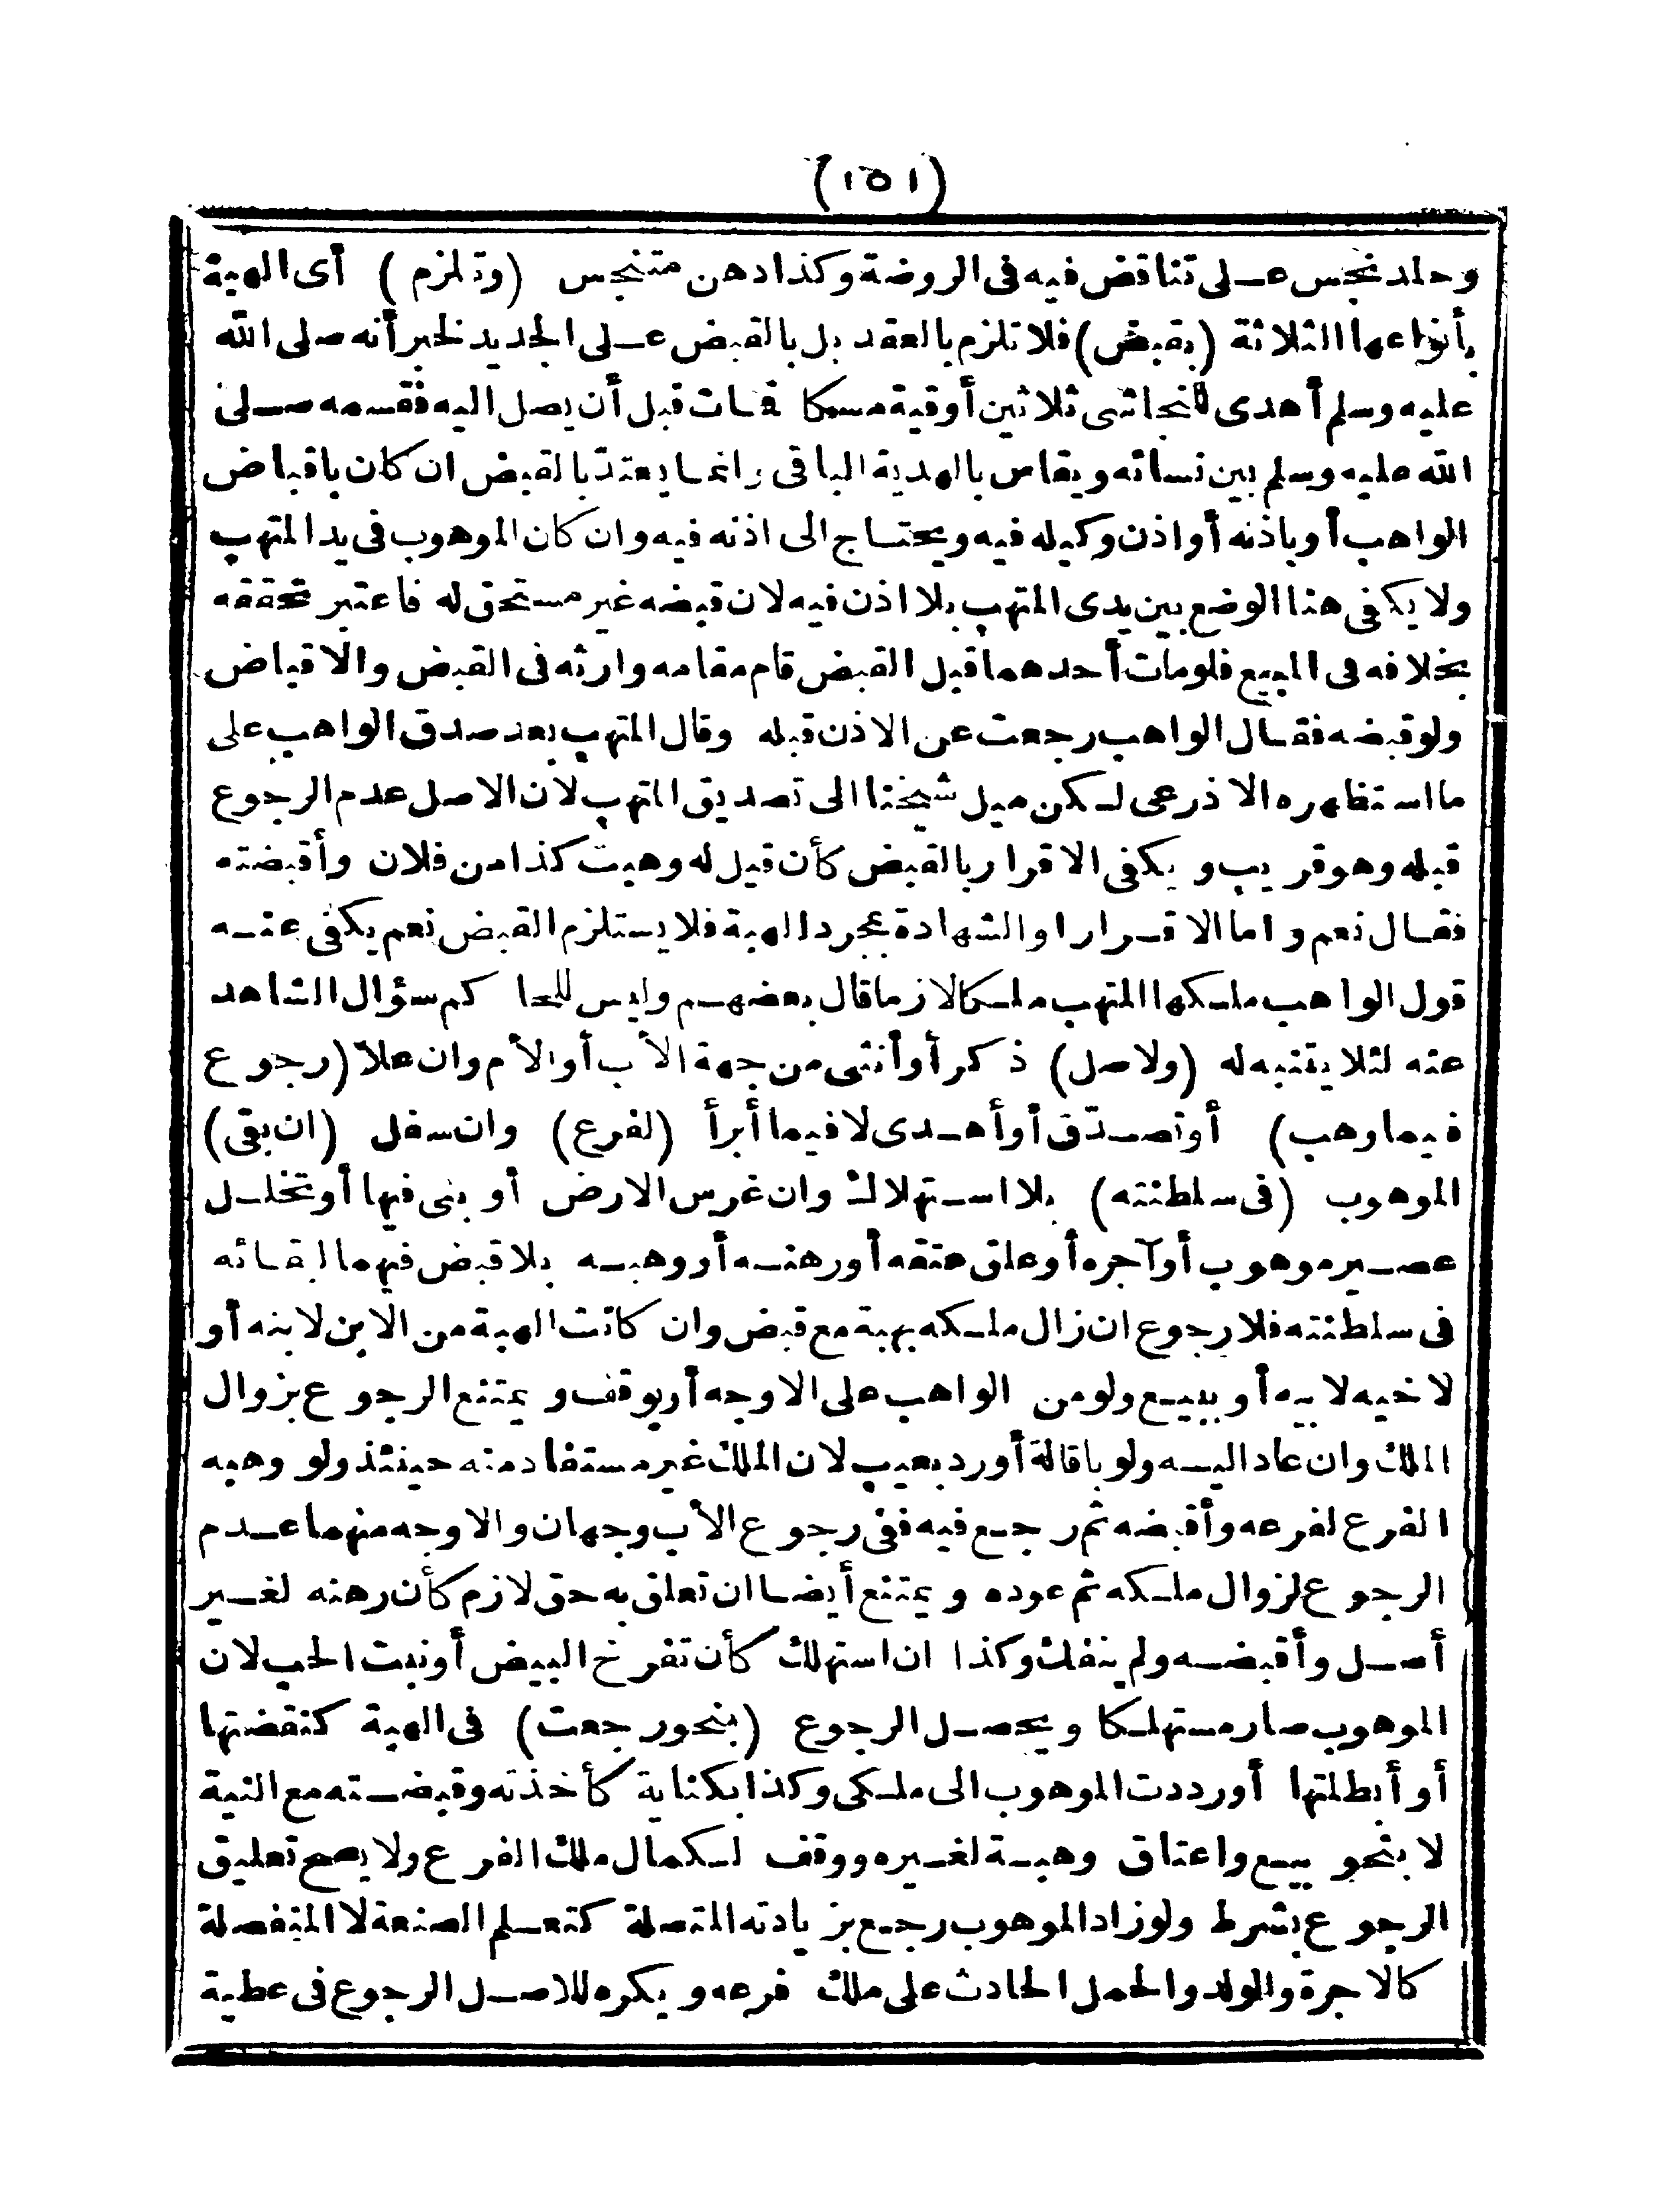 (١٥١)
وجلد نجس على تناقض فيه فى الروضة وكذا دهن متنجس (وتلزم) أى الهبة
بأنواعها الثلاثة (بقبض) فلا تلزم بالعقد بل بالقبض على الجديد لخبر أنه صلى الله
عليه وسلم أهدى للنجاشى ثلاثين أوقية مسكا فمات قبل أن يصل اليه فقسمه صلى
الله عليه وسلم بين نسائه ويقاس بالهدية الباقى وانما يعتد بالقبض ان كان باقباض
الواهب أو باذنه أو اذن وكيله فيه ويحتاج الى اذنه فيه وان كان الموهوب فى يد المتهب
ولا يكفى هنا الوضع بين يدى المتهب بلا اذن فيه لان قبضه غير مستحق له فاعتبر تحققه
بخلافه فى المبيع فلو مات أحدهما قبل القبض قام مقامه وارثه فى القبض والاقباض
ولو قبضه فقال الواهب رجعت عن الاذن قبله وقال المتهب بعد صدق الواهب على
ما استظهره الاذرعى لكن ميل شيخنا الى تصديق المتهب لان الاصل عدم الرجوع
قبله وهو قريب ويكفى الاقرار بالقبض كأن قيل له وهبت كذا من فلان وأقبضته
فقال نعم واما الاقرار او الشهادة بمجرد الهبة فلا يستلزم القبض نعم يكفى عنه
قول الواهب ملكها المتهب ملكا لازما قال بعضهم وليس للحاكم سؤال الشاهد
عنه لئلا يتنبه له (ولاصل) ذكر أو أنثى من جهة الأب أو الأم وان علا (رجوع
فيما وهب) أو تصدّق أو أهدى لا فيما أبرأ (لفرع) وان سفل (ان بقى)
الموهوب (فى سلطنته) بلا استهلاك وان غرس الارض أو بنى فيها أو تخلل
عصير موهوب أو آجره أو علق عتقه أو رهنه أو وهبه بلا قبض فيهما لبقائه
فى سلطنته فلا رجوع ان زال ملكه بهبة مع قبض وان كانت الهبة من الابن لابنه أو
لاخيه لابيه أو ببيع ولو من الواهب على الاوجه أو بوقف ويمتنع الرجوع بزوال
الملك وان عاد اليه ولو باقالة أو رد بعيب لان الملك غير مستفاد منه حينئذ ولو وهبه
الفرع لفرعه وأقبضه ثم رجع فيه ففى رجوع الأب وجهان والاوجه منهما عدم
الرجوع لزوال ملكه ثم عوده ويمتنع أيضا ان تعلق به حق لازم كأن رهنه لغير
أصل وأقبضه ولم ينفك وكذا ان استهلك كأن تفرخ البيض أو نبت الحب لان
الموهوب صار مستهلكا ويحصل الرجوع (بنحو رجعت) فى الهبة كنقضتها
أو أبطلتها أو رددت الموهوب الى ملكى وكذا بكناية كأخذته وقبضته مع النية
لا بنحو بيع واعتاق وهبة لغيره ووقف لكمال ملك الفرع ولا يصح تعليق
الرجوع بشرط ولو زاد الموهوب رجع بزيادته المتصلة كتعلم الصنعة لا المنفصلة
كالاجرة والولد والحمل الحادث على ملك فرعه ويكره للاصل الرجوع فى عطية